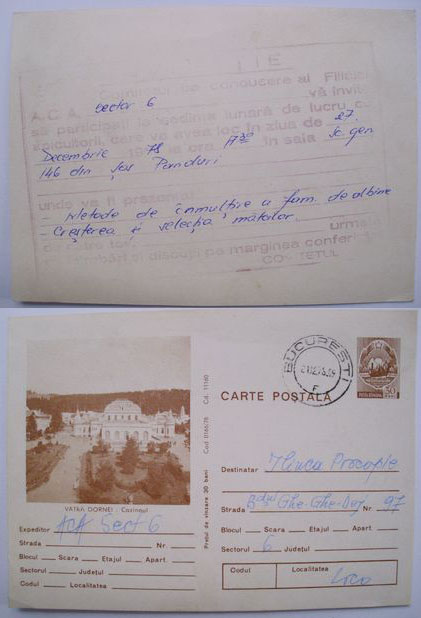 Comitetul de conducere al Filialei
A.C.A. sector 6 vă invită
să participați la ședința lunară de lucru cu
apicultorii, care va avea loc în ziua de 27
Decembrie 1978 la ora 17³⁰ în sala Șc. gen
146 din șos Panduri
unde va fi prezentat
- Metode de înmulțire a fam. de albine
- Creșterea și selecția mătcilor.
urmată
și discuți pe marginea conferinței
COMITETUL
VATRA DORNEI : Cazinoul
Expeditor ACA Sect 6
Strada Nr
Blocul Scara Etajul Apart.
Sectorul Județul
Codul Localitatea
Prețul de vînzare 30 bani Cod 0166/78 Cd. 11140
BUCUREȘTI
F
CARTE POSTALĂ
Destinatar Ilinca Procopie
Strada B-dul Ghe-Ghe-Dej Nr. 97
Blocul Scara Etajul Apart.
Sectorul 6 Județul
Codul Localitatea
Loco